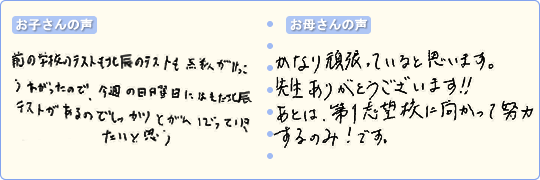 お子さんの声
前の学校のテストも北辰のテストも点数がけっこ
う上がったので、今週の日曜日にはまた北辰
テストがあるのでしっかりとがんばって行き
たいと思う
お母さんの声
かなり頑張っていると思います。
先生ありがとうございます!!
あとは、第1志望校に向かって努力
するのみ!です。